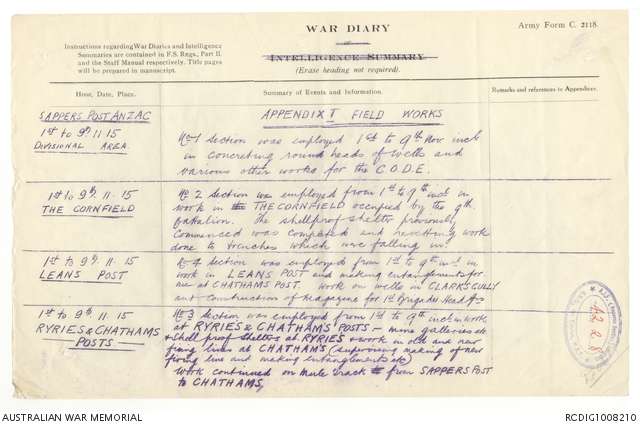 WAR DIARY
or
INTELLIGENCE SUMMARY
(Erase heading not required).
Army Form C. 2118.
Instructions regarding War Diaries and Intelligence
Summaries are contained in F.S. Regs., Part II.
and the Staff Manual respectively. Title pages
will be prepared in manuscript.
Hour, Date, Place.
Summary of Events and Information.
Remarks and references to Appendices.
SAPPERS POST ANZAC
APPENDIX I FIELD WORKS
1st to 9th 11 15
DIVISIONAL AREA
No 1 Section was employed 1st to 9th Nov incl
in concreting round heads of wells and
various other works for the C.O.D.E.
1st to 9th 11. 15
THE CORNFIELD
No. 2 Section was employed from 1st to 9th incl on
work in the THE CORNFIELD occupied by the 9th
battalion. The shellproof shelter previously
commenced was completed and revetting work
done to trenches which are falling in.
1st to 9th 11. 15
LEANS POST
No 4 Section was employed from 1st to 9th incl on
work in LEANS POST and making entanglements for
use at CHATHAMS POST. Work on wells in CLARKS GULLY
and construction of Magazine for 1st Brigade Head Qrs
1st to 9th 11. 15
RYRIES & CHATHAMS
POSTS
No 3 Section was employed from 1st to 9th incl on work
at RYRIES & CHATHAMS POSTS - mine galleries etc
& shell proof shelters at RYRIES & work in old and new
firing lines at CHATHAMS (supervising making of new
firing line and making entanglements etc)
Work continued on Mule Track from SAPPERS POST
to CHATHAMS.
AUSTRALIAN WAR MEMORIAL
RCDIG1008210